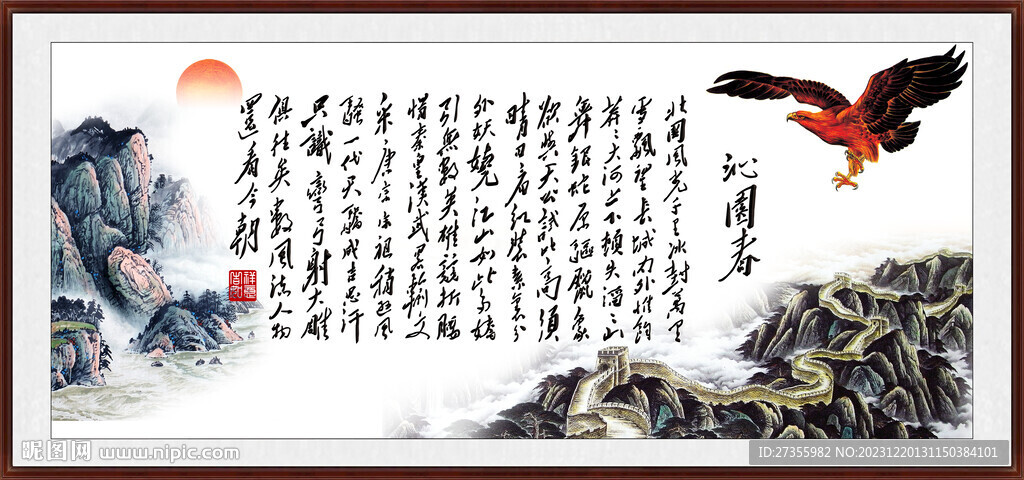 沁園春
北國風光千里冰封萬里
雪飄望長城內外惟餘
莽莽大河上下頓失滔滔山
舞銀蛇原驅臘象
欲與天公試比高須
晴日看紅裝素裹分
外妖嬈江山如此多嬌
引無數英雄競折腰
惜秦皇漢武略輸文
采唐宗宋祖稍遜風
騷一代天驕成吉思汗
只識彎弓射大雕
俱往矣數風流人物
還看今朝
昵图网 www.nipic.com
ID:27355982 NO:20231220131150384101